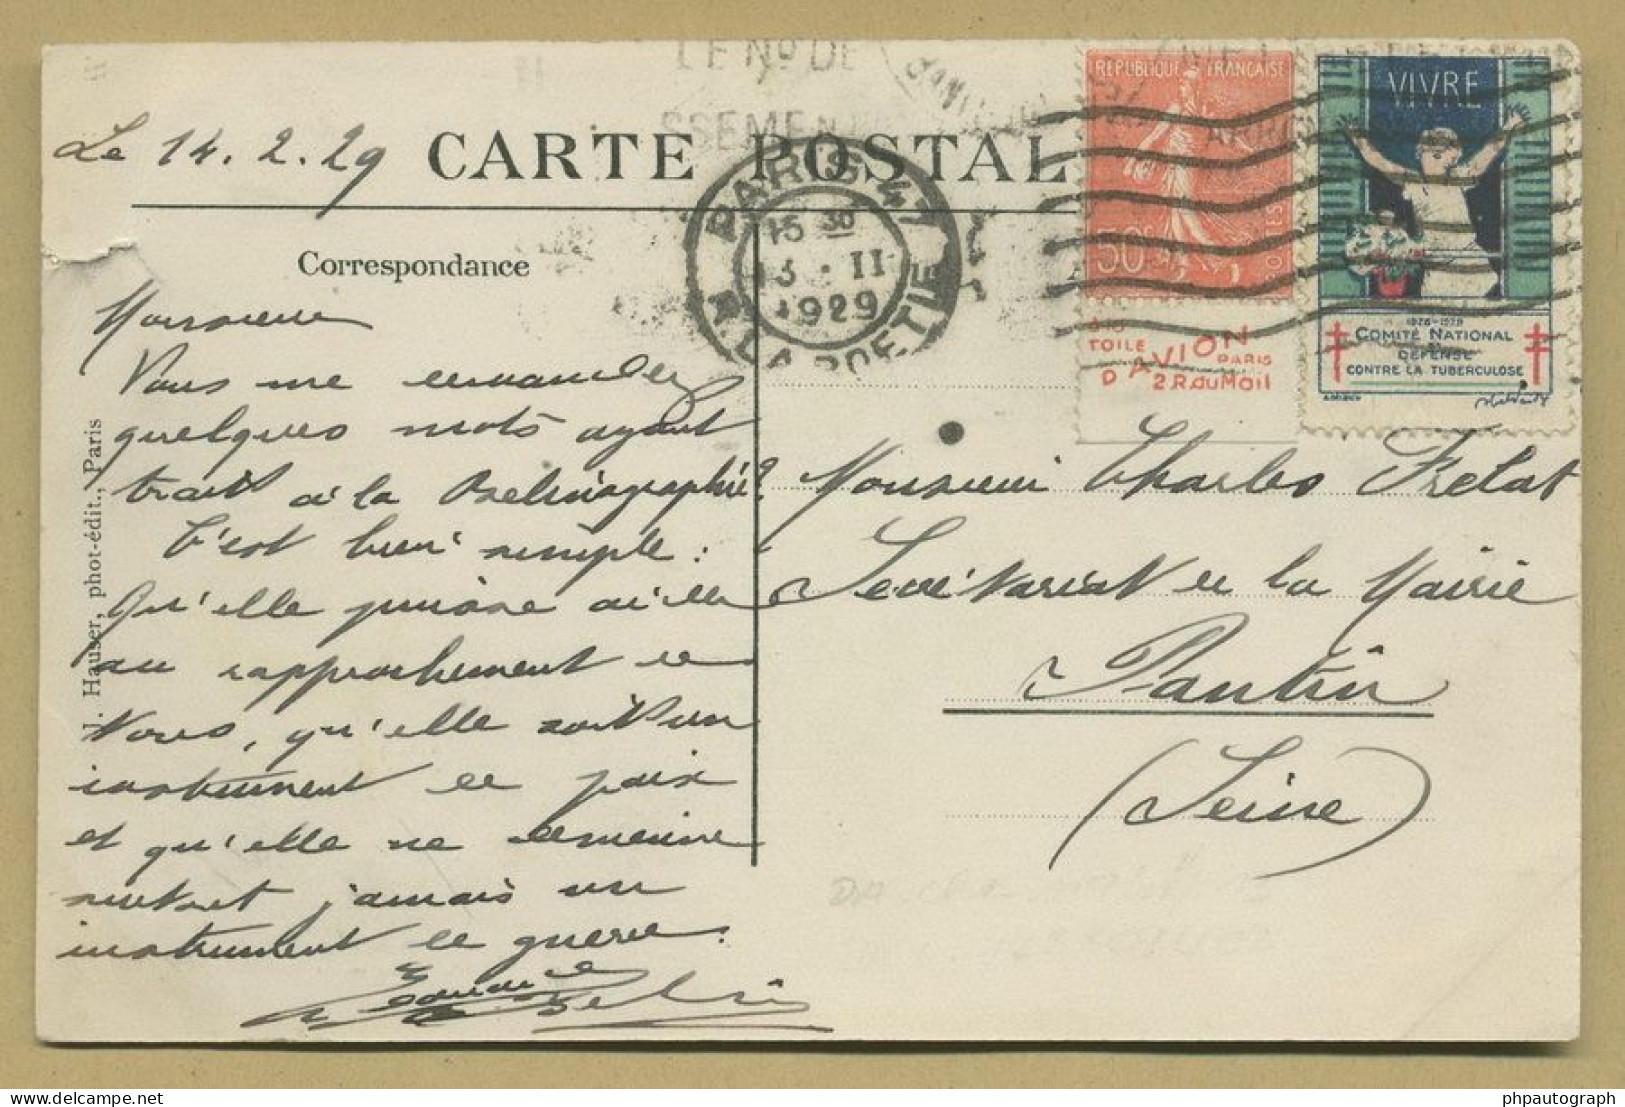 LE No DE
SSEMEN
Le 14.2.29
CARTE POSTALE
PARIS 47
15 30
13 . II
1929
R. LA BOETIE
REPUBLIQUE FRANÇAISE
50c
TOILE
D'AVION
PARIS
2 R. du Mail
VIVRE
1928-1929
COMITÉ NATIONAL
DÉFENSE
CONTRE LA TUBERCULOSE
Correspondance
J. Hauser, phot-édit., Paris
Monsieur
Vous me demandez
quelques mots ayant
trait à la Belinographie?
C'est bien simple:
Qu'elle puisse aider
au rapprochement de
Nous, qu'elle soit un
instrument de paix
et qu'elle ne devienne
surtout jamais un
instrument de guerre.
Edouard Belin
Monsieur Charles Frelat
Secrétariat de la Mairie
Pantin
(Seine)
delcampe.net
phpautograph